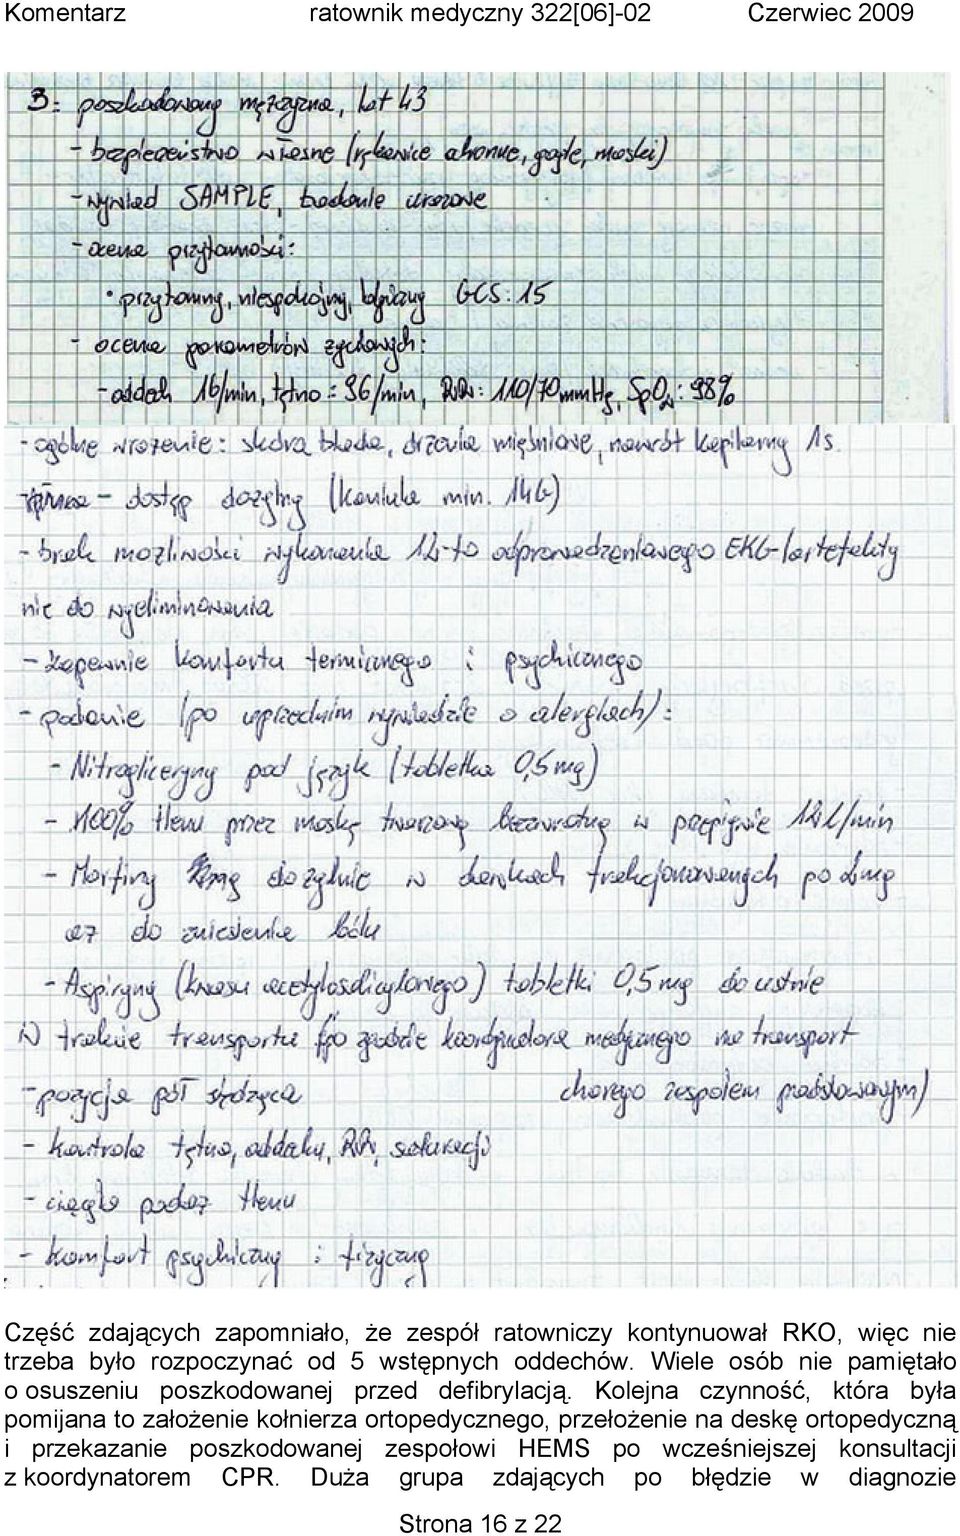 Komentarz ratownik medyczny 322[06]-02 Czerwiec 2009
3: poszkodowany mężczyzna, lat 43
- bezpieczeństwo własne (rękawice ochronne, gogle, maski)
- wywiad SAMPLE, badanie urazowe
- ocena przytomności:
• przytomny, niespokojny, logiczny GCS: 15
- ocena parametrów życiowych:
- oddech 16/min, tętno = 96/min, RR: 110/70 mmHg, SpO2: 98%
- ogólne wrażenie: skóra blada, drżenia mięśniowe, nawrót kapilarny 1s.
- dostęp dożylny (kaniula min. 14G)
- brak możliwości wykonania 12-to odprowadzeniowego EKG - artefakty
nie do wyeliminowania
- zapewnie komfortu termicznego i psychicznego
- podanie (po uprzednim wywiadzie o alergiach):
- Nitrogliceryny pod język (tabletka 0,5 mg)
- 100% tlenu przez maskę twarzową bezzwrotną w przepływie 12 l/min
- Morfiny dożylnie w dawkach frakcjonowanych po 2mg
aż do zniesienia bólu
- Aspiryny (kwasu acetylosalicylowego) tabletki 0,5 mg doustnie
W trakcie transportu (po zgodzie koordynatora medycznego na transport
chorego zespołem podstawowym)
- pozycja pół siedząca
- kontrola tętna, oddechu, RR, saturacji
- ciągła podaż tlenu
- komfort psychiczny i fizyczny
Część zdających zapomniało, że zespół ratowniczy kontynuował RKO, więc nie
trzeba było rozpoczynać od 5 wstępnych oddechów. Wiele osób nie pamiętało
o osuszeniu poszkodowanej przed defibrylacją. Kolejna czynność, która była
pomijana to założenie kołnierza ortopedycznego, przełożenie na deskę ortopedyczną
i przekazanie poszkodowanej zespołowi HEMS po wcześniejszej konsultacji
z koordynatorem CPR. Duża grupa zdających po błędzie w diagnozie
Strona 16 z 22